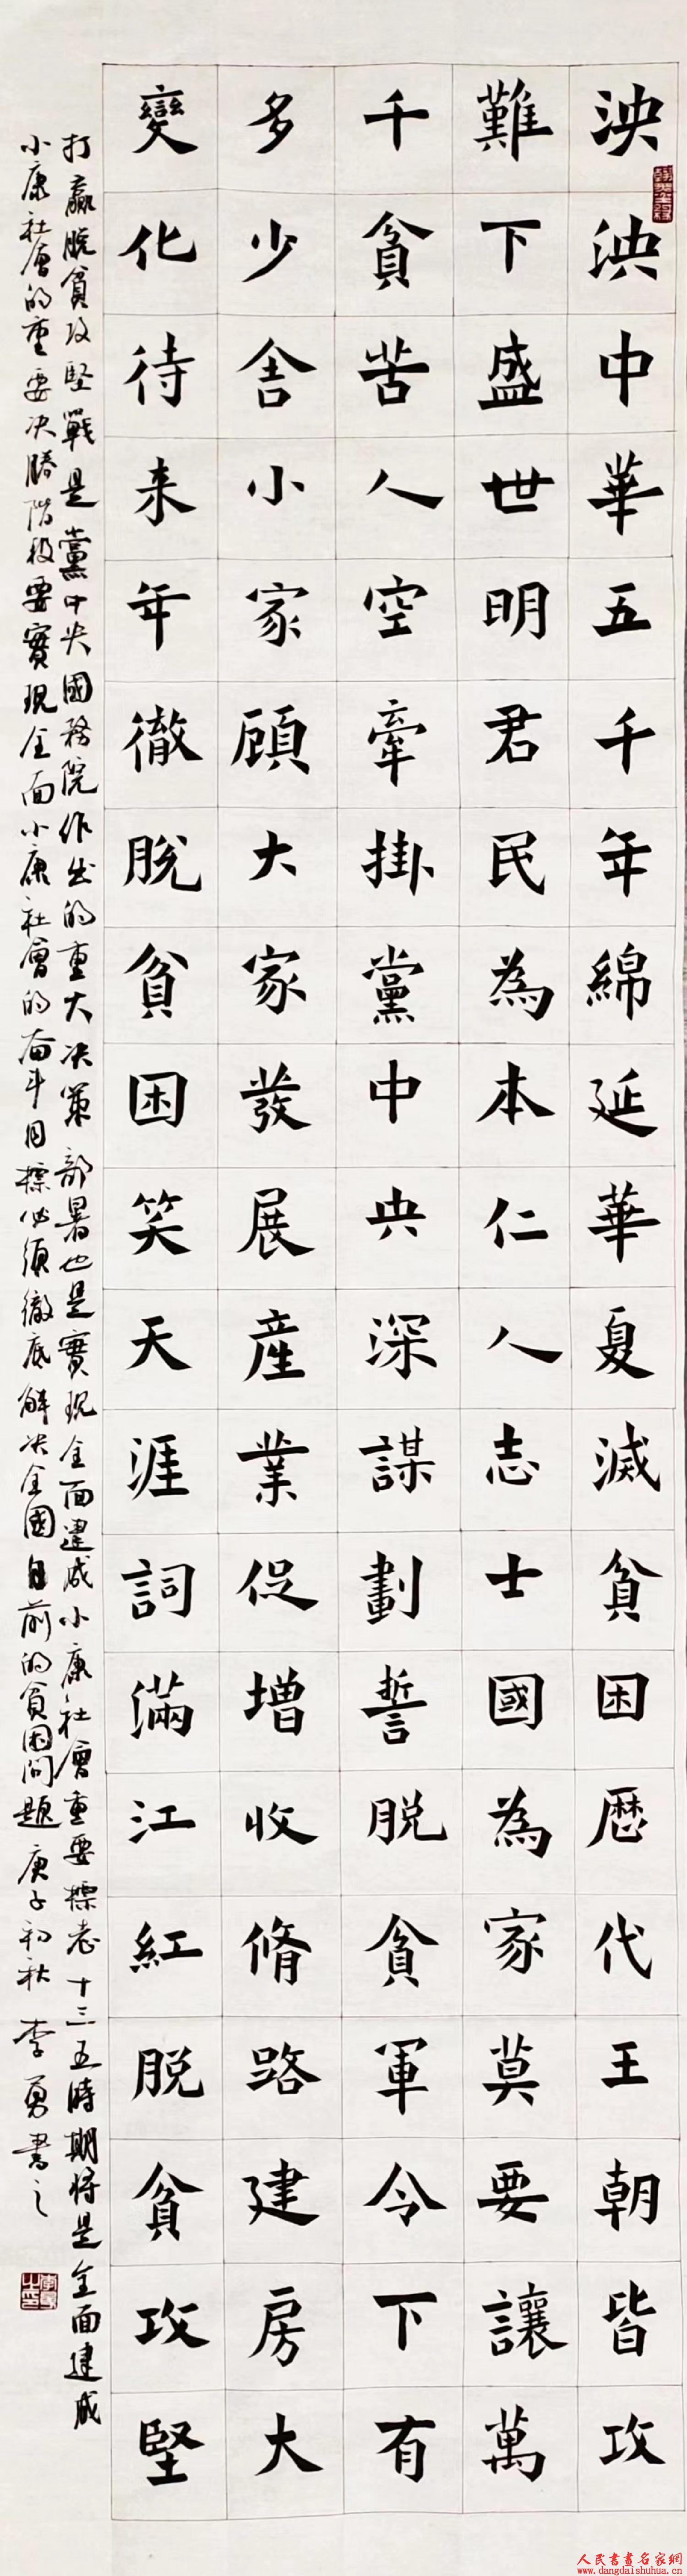 泱泱中華五千年綿延華夏滅貧困歴代王朝皆攻
難下盛世明君民為本仁人志士國為家莫要讓萬
千貧苦人空牽掛黨中央深謀劃誓脱貧軍令下有
多少舍小家顧大家發展産業促增收脩路建房大
變化待来年徹脱貧困笑天涯詞滿江紅脱貧攻堅
打贏脱貧攻堅戰是黨中央國務院作出的重大决策部署也是實現全面建成小康社會重要標志十三五時期將是全面建成
小康社會的重要决勝階段要實現全面小康社會的奋斗目標必須徹底解决全國目前的貧困問題庚子初秋李勇書之
李勇之印
人民書畫名家網
www.dangdaishuhua.cn